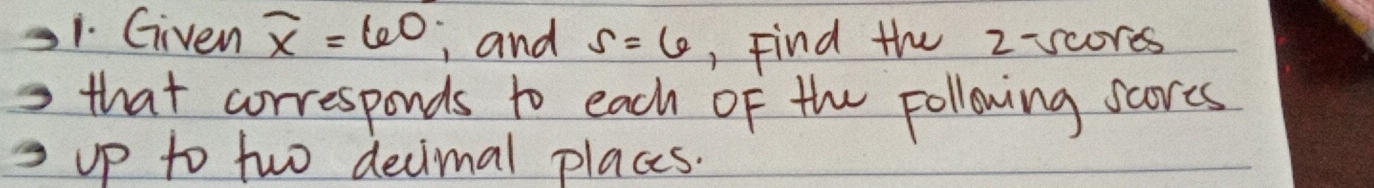 1. Given x̄ = 60; and s = 6, Find the z-scores
that corresponds to each of the following scores
up to two decimal places.